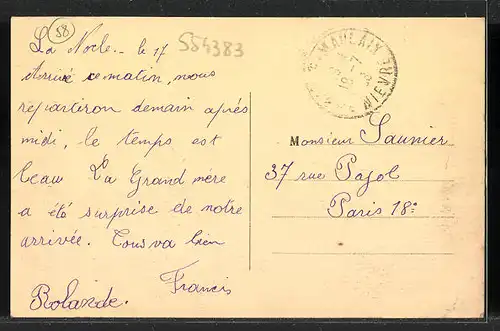 58
554383
La Nocle - le 17
Arrivé ce matin, nous
repartiron demain après
midi, le temps est
beau La Grand mère
a été surprise de notre
arrivée. Tous va bien
Francis
Rolande.
NIEVRE
Monsieur Saunier
37 rue Pajol
Paris 18e